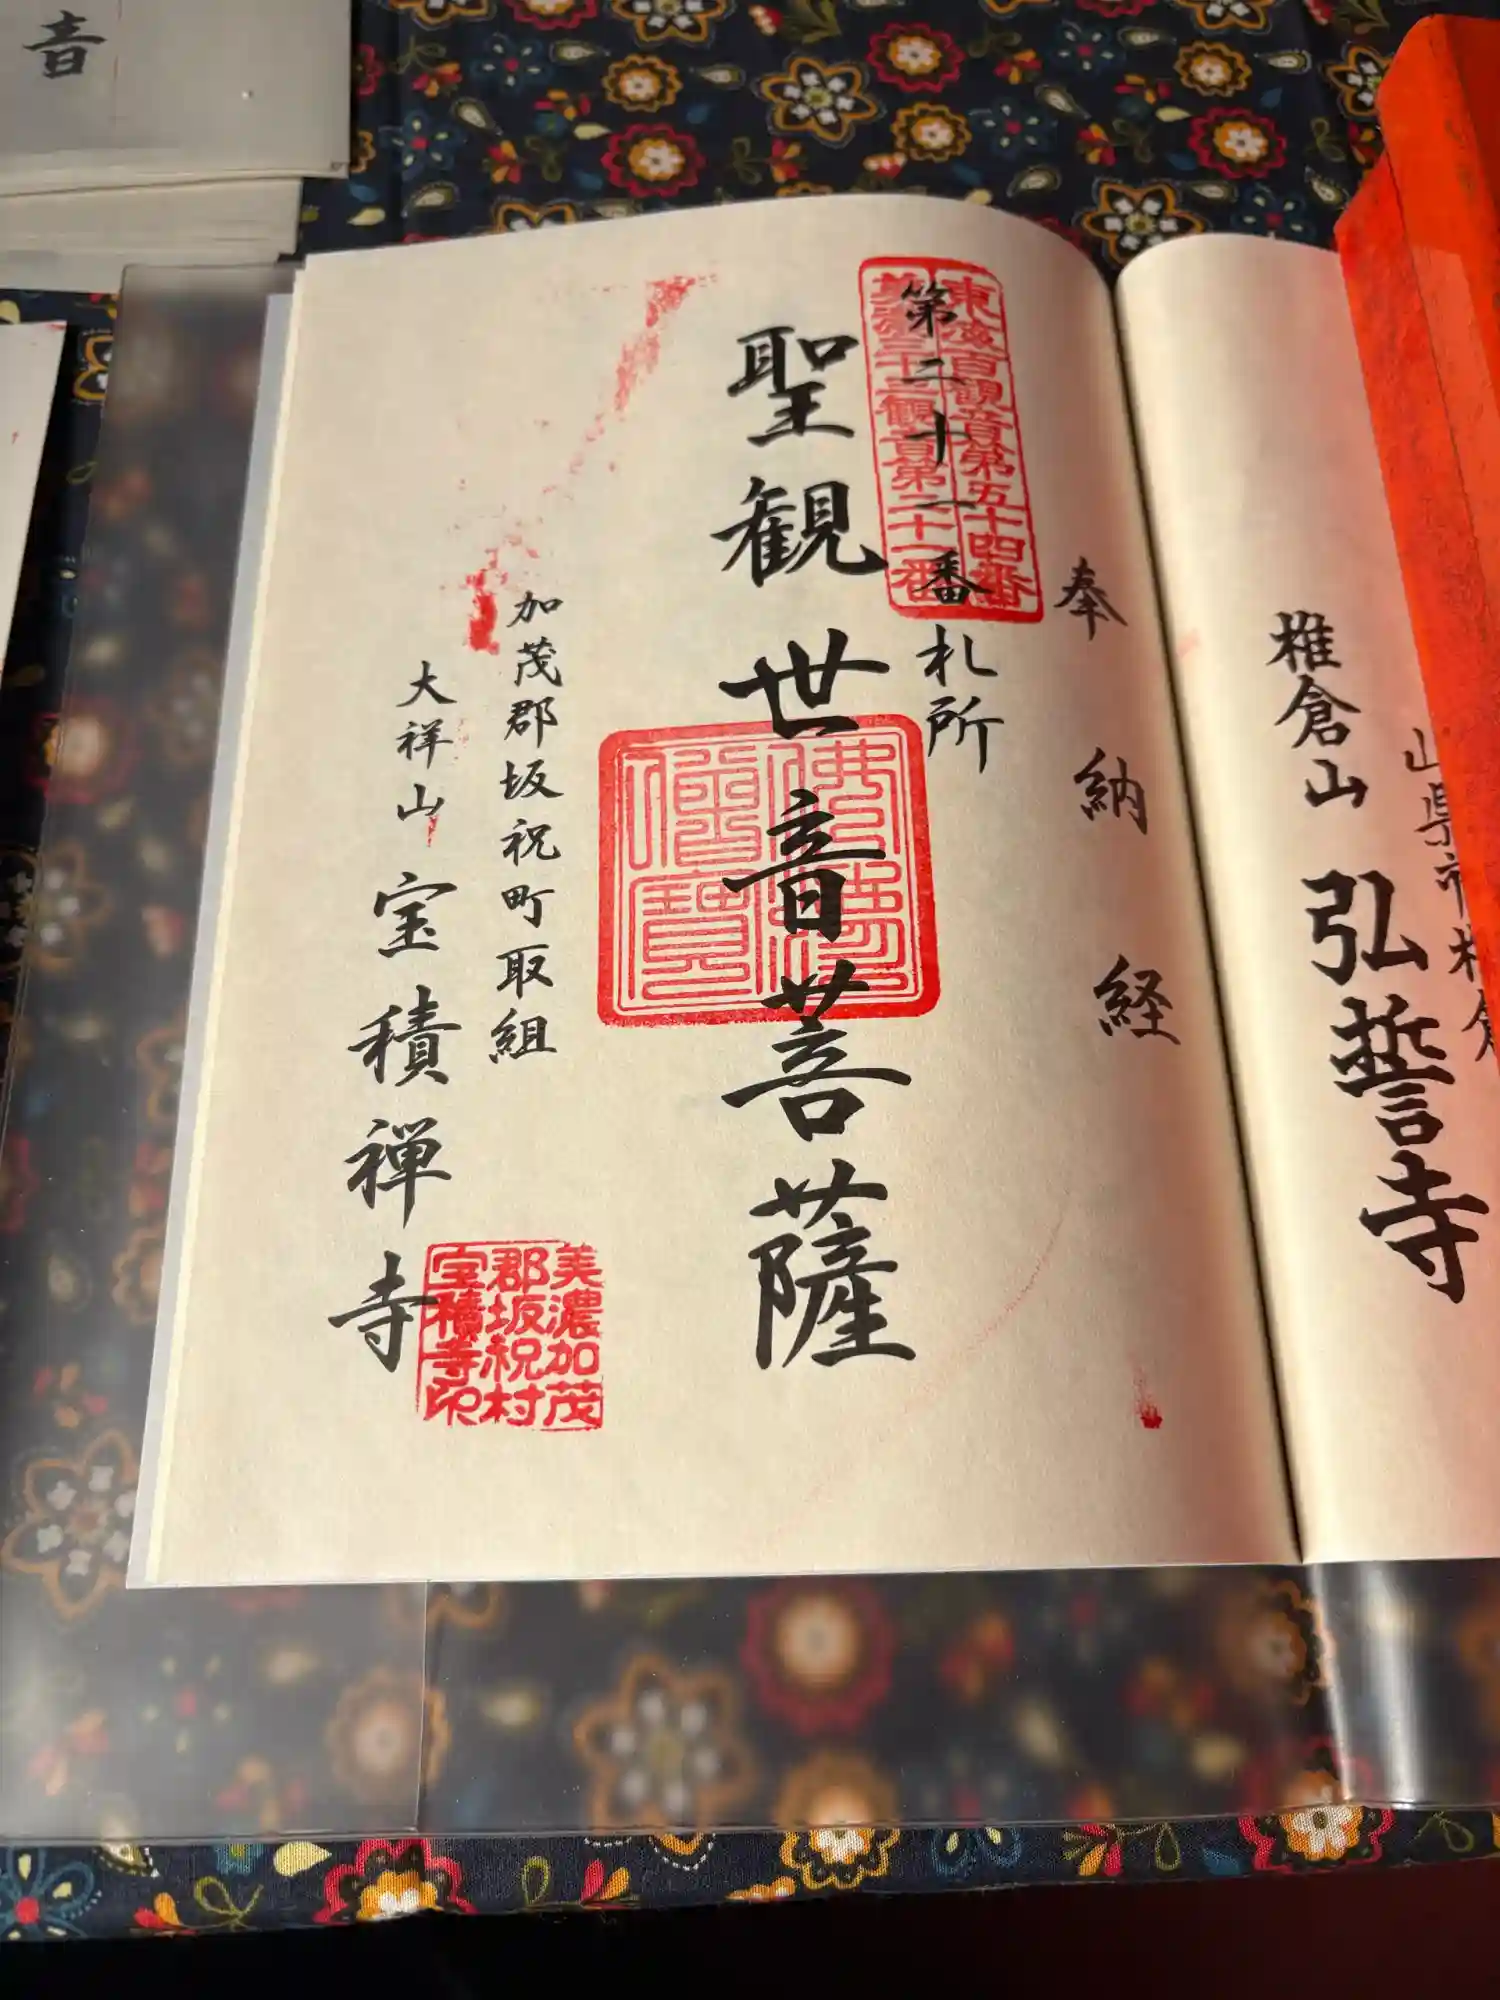 山県市椎倉
椎倉山 弘誓寺
奉納経
第二十一番札所
東海百観音第五十四番
美濃三十三観音第二十一番
聖観世音菩薩
佛法僧寶
加茂郡坂祝町取組
大祥山 宝積禅寺
美濃加茂
郡坂祝村
宝積寺印
音